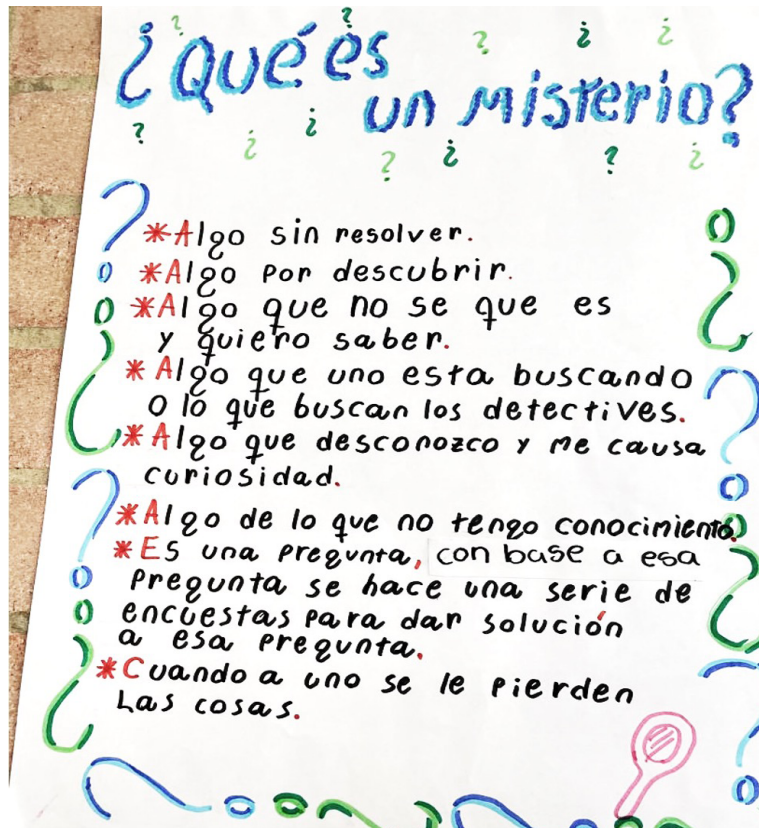 ¿Qué es
un misterio?
*Algo sin resolver.
*Algo por descubrir.
*Algo que no se que es
y quiero saber.
*Algo que uno esta buscando
o lo que buscan los detectives.
*Algo que desconozco y me causa
curiosidad.
*Algo de lo que no tengo conocimiento.
*Es una pregunta, con base a esa
pregunta se hace una serie de
encuestas para dar solución
a esa pregunta.
*Cuando a uno se le pierden
Las cosas.